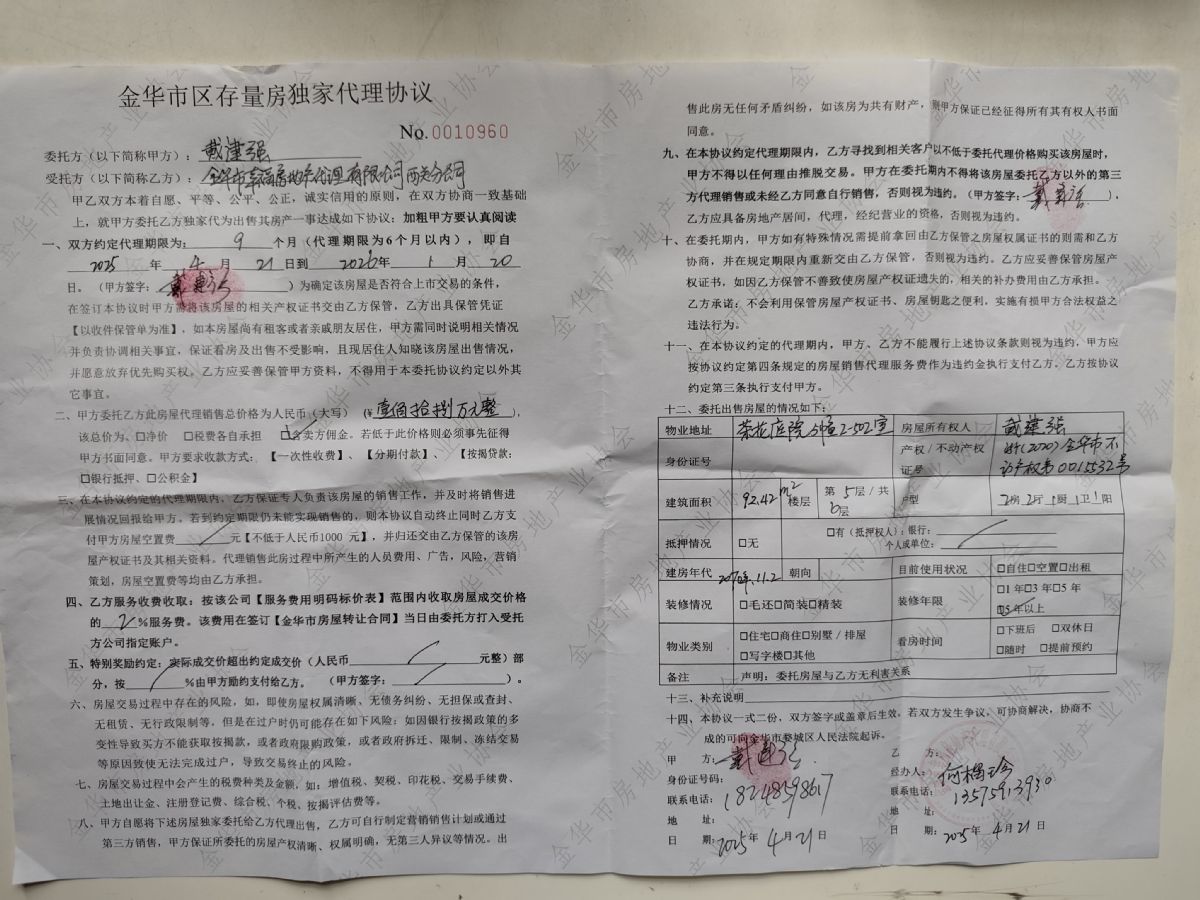 金华市区存量房独家代理协议
No.0010960
委托方（以下简称甲方）：戴建强
受托方（以下简称乙方）：金华市幸福房地产代理有限公司
甲乙双方本着自愿、平等、公平、公正，诚实信用的原则，在双方协商一致基础
上，就甲方委托乙方独家代为出售其房产一事达成如下协议：加粗甲方要认真阅读
一、双方约定代理期限为：9个月（代理期限为6个月以内），即自
2025年4月21日到2026年1月20
日。（甲方签字：戴建强）为确定该房屋是否符合上市交易的条件，
在签订本协议时甲方需将该房屋的相关产权证书交由乙方保管，乙方出具保管凭证
【以收件保管单为准】，如本房屋尚有租客或者亲戚朋友居住，甲方需同时说明相关情况
并负责协调相关事宜，保证看房及出售不受影响，且现居住人知晓该房屋出售情况，
并愿意放弃优先购买权。乙方应妥善保管甲方资料，不得用于本委托协议约定以外其
它事宜。
二、甲方委托乙方此房屋代理销售总价格为人民币（大写）（¥壹佰拾捌万元整），
该总价为：□净价 □税费各自承担 □含卖方佣金。若低于此价格则必须事先征得
甲方书面同意。甲方要求收款方式：【一次性收费】、【分期付款】、【按揭贷款：
□银行抵押、□公积金】
三、在本协议约定的代理期限内，乙方保证专人负责该房屋的销售工作，并及时将销售进
展情况回报给甲方。若到约定期限仍未能实现销售的，则本协议自动终止同时乙方支
付甲方房屋空置费 元【不低于人民币1000元】，并归还交由乙方保管的该房
屋产权证书及其相关资料。代理销售此房过程中所产生的人员费用、广告，风险，营销
策划，房屋空置费等均由乙方承担。
四、乙方服务收费收取：按该公司【服务费用明码标价表】范围内收取房屋成交价格
的2%服务费。该费用在签订【金华市房屋转让合同】当日由委托方打入受托
方公司指定账户。
五、特别奖励约定：实际成交价超出约定成交价（人民币 元整）部
分，按 %由甲方励约支付给乙方。（甲方签字： ）。
六、房屋交易过程中存在的风险，如，即使房屋权属清晰、无债务纠纷、无担保或查封、
无租赁、无行政限制等，但是在过户时仍可能存在如下风险：如因银行按揭政策的多
变性导致买方不能获取按揭款，或者政府限购政策，或者政府拆迁、限制、冻结交易
等原因致使无法完成过户，导致交易终止的风险。
七、房屋交易过程中会产生的税费种类及金额，如：增值税、契税、印花税、交易手续费、
土地出让金、注册登记费、综合税、个税、按揭评估费等。
八、甲方自愿将下述房屋独家委托给乙方代理出售，乙方可自行制定营销销售计划或通过
第三方销售，甲方保证所委托的房屋产权清晰、权属明确，无第三人异议等情况。出
售此房无任何矛盾纠纷，如该房为共有财产，则甲方保证已经征得所有其有权人书面
同意。
九、在本协议约定代理期限内，乙方寻找到相关客户以不低于委托代理价格购买该房屋时，
甲方不得以任何理由推脱交易。甲方在委托期内不得将该房屋委托乙方以外的第三
方代理销售或未经乙方同意自行销售，否则视为违约。（甲方签字：戴建强），
乙方应具备房地产居间，代理，经纪营业的资格，否则视为违约。
十、在委托期内，甲方如有特殊情况需提前拿回由乙方保管之房屋权属证书的则需和乙方
协商，并在规定期限内重新交由乙方保管，否则视为违约。乙方应妥善保管房屋产
权证书，如因乙方保管不善致使房屋产权证遗失的，相关的补办费用由乙方承担。
乙方承诺：不会利用保管房屋产权证书、房屋钥匙之便利，实施有损甲方合法权益之
违法行为。
十一、在本协议约定的代理期内，甲方、乙方不能履行上述协议条款则视为违约，甲方应
按协议约定第四条规定的房屋销售代理服务费作为违约金执行支付乙方，乙方按协议
约定第三条执行支付甲方。
十二、委托出售房屋的情况如下：
物业地址 荣花庭院 2-502室 房屋所有权人 戴建强
身份证号 产权/不动产权证号 浙(2020)金华市不动产权第0015532号
建筑面积 92.42m² 楼层 第5层/共6层 户型 2房2厅1厨1卫1阳
抵押情况 □无 □有（抵押权人）：银行：
个人或单位：
建房年代 朝向 目前使用状况 □自住□空置□出租
装修情况 □毛还□简装□精装 装修年限 □1年□3年□5年
□5年以上
物业类别 □住宅□商住□别墅/排屋
□写字楼□其他 看房时间 □下班后 □双休日
□随时 □提前预约
备注 声明：委托房屋与乙方无利害关系
十三、补充说明
十四、本协议一式二份，双方签字或盖章后生效，若双方发生争议，可协商解决，协商不
成的可向金华市婺城区人民法院起诉。
甲 方：戴建强 乙 方：
身份证号码： 经办人：何梅珍
联系电话：18248598617 联系电话：13575913930
地 址： 地 址：
日 期：2025年4月21日 日 期：2025年4月21日